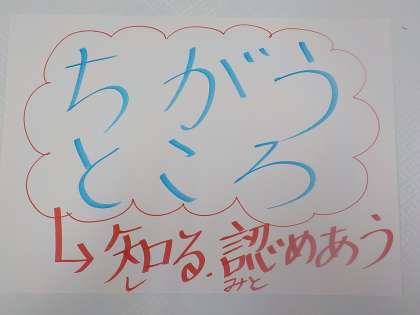 ちがう
ところ
↳知る.認めあう
し みと